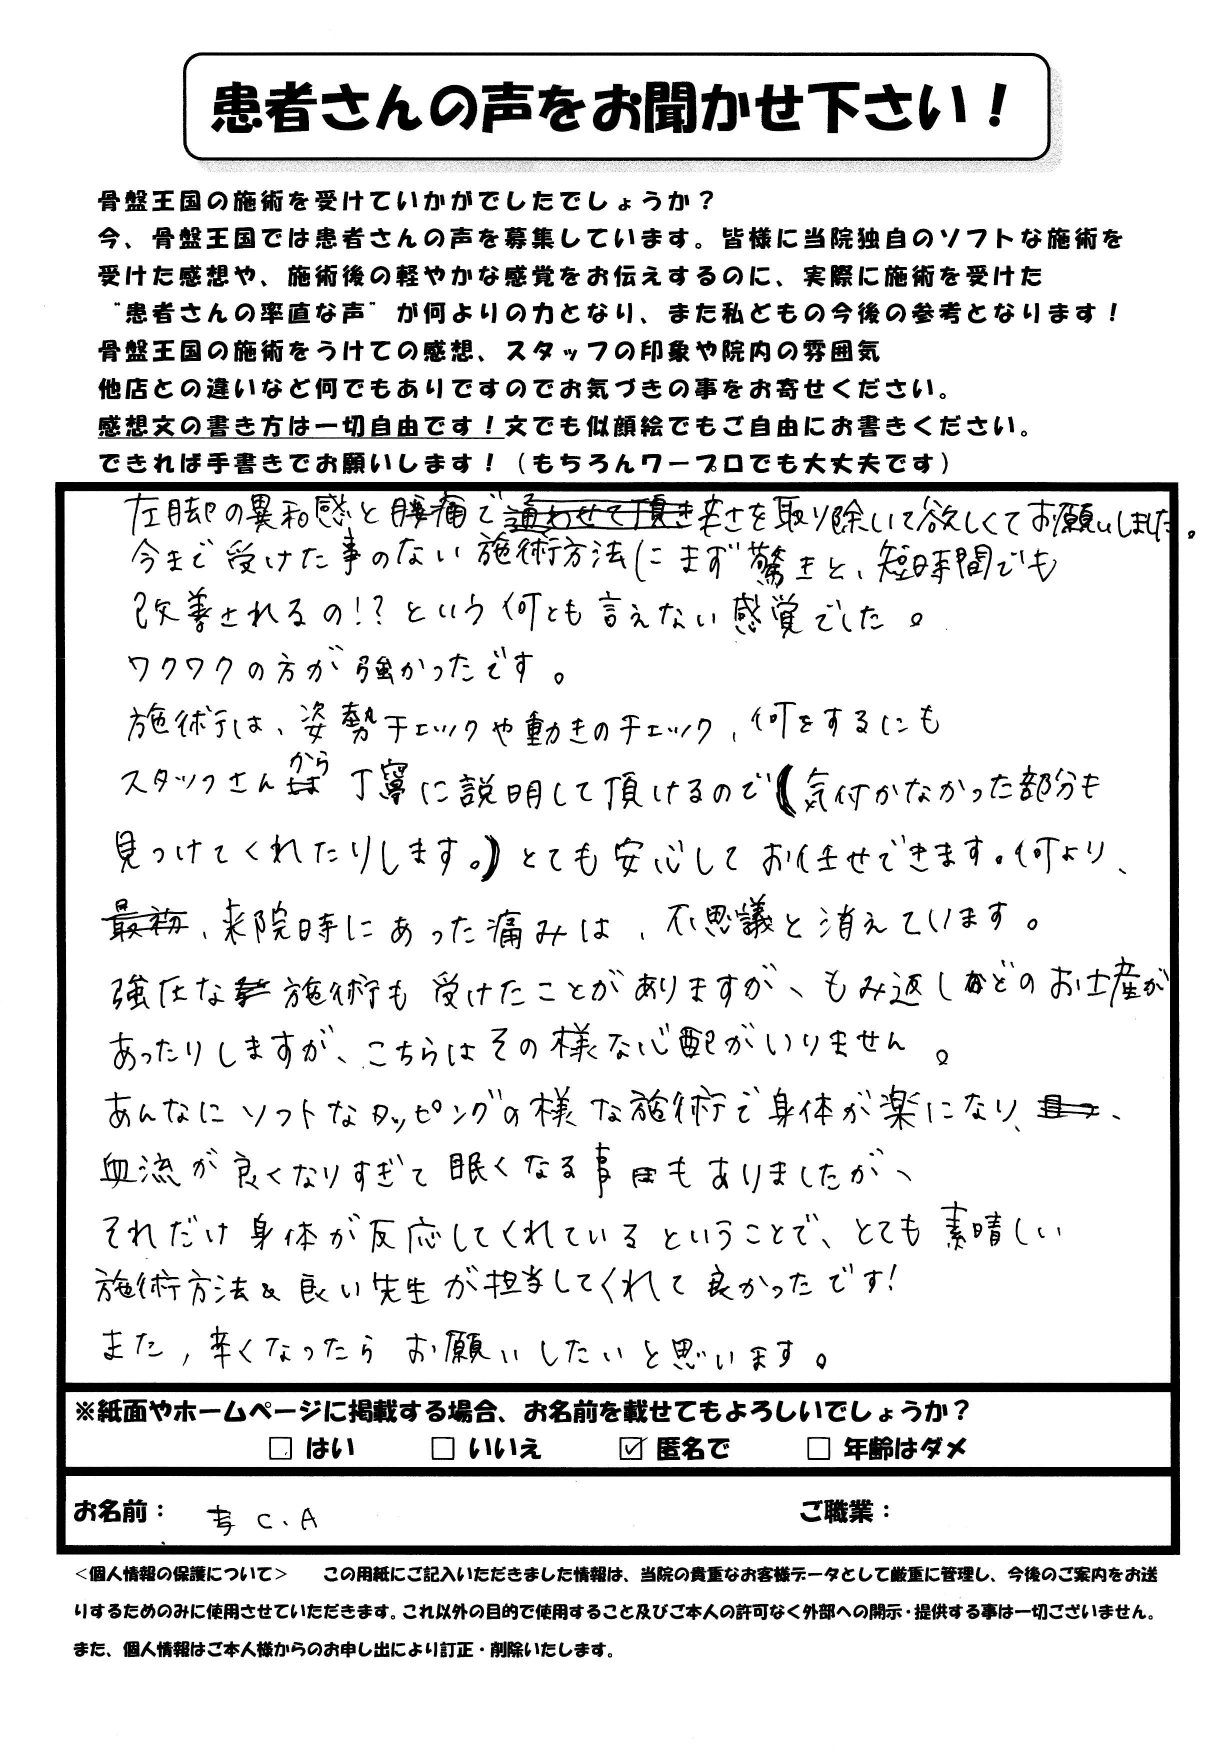 患者さんの声をお聞かせ下さい！
骨盤王国の施術を受けていかがでしたでしょうか？
今、骨盤王国では患者さんの声を募集しています。皆様に当院独自のソフトな施術を
受けた感想や、施術後の軽やかな感覚をお伝えするのに、実際に施術を受けた
“患者さんの率直な声”が何よりの力となり、また私どもの今後の参考となります！
骨盤王国の施術をうけての感想、スタッフの印象や院内の雰囲気
他店との違いなど何でもありですのでお気づきの事をお寄せください。
感想文の書き方は一切自由です！文でも似顔絵でもご自由にお書きください。
できれば手書きでお願いします！（もちろんワープロでも大丈夫です）
左脚の異和感と腰痛で通わせて頂き辛さを取り除いて欲しくてお願いしました。
今まで受けた事のない施術方法にまず驚きと、短時間でも
改善されるの！？という何とも言えない感覚でした。
ワクワクの方が強かったです。
施術は、姿勢チェックや動きのチェック、何をするにも
スタッフさんから丁寧に説明して頂けるので（気付かなかった部分も
見つけてくれたりします。）とても安心してお任せできます。何より、
最初、来院時にあった痛みは、不思議と消えています。
強圧な施術も受けたことがありますが、もみ返しなどのお土産が
あったりしますが、こちらはその様な心配がいりません。
あんなにソフトなタッピングの様な施術で身体が楽になり、
血流が良くなりすぎて眠くなる事もありましたが、
それだけ身体が反応してくれているということで、とても素晴しい
施術方法&良い先生が担当してくれて良かったです！
また、辛くなったらお願いしたいと思います。
※紙面やホームページに掲載する場合、お名前を載せてもよろしいでしょうか？
□ はい □ いいえ ☑ 匿名で □ 年齢はダメ
お名前： C.A ご職業：
＜個人情報の保護について＞ この用紙にご記入いただきました情報は、当院の貴重なお客様データとして厳重に管理し、今後のご案内をお送
りするためのみに使用させていただきます。これ以外の目的で使用すること及びご本人の許可なく外部への開示・提供する事は一切ございません。
また、個人情報はご本人様からのお申し出により訂正・削除いたします。